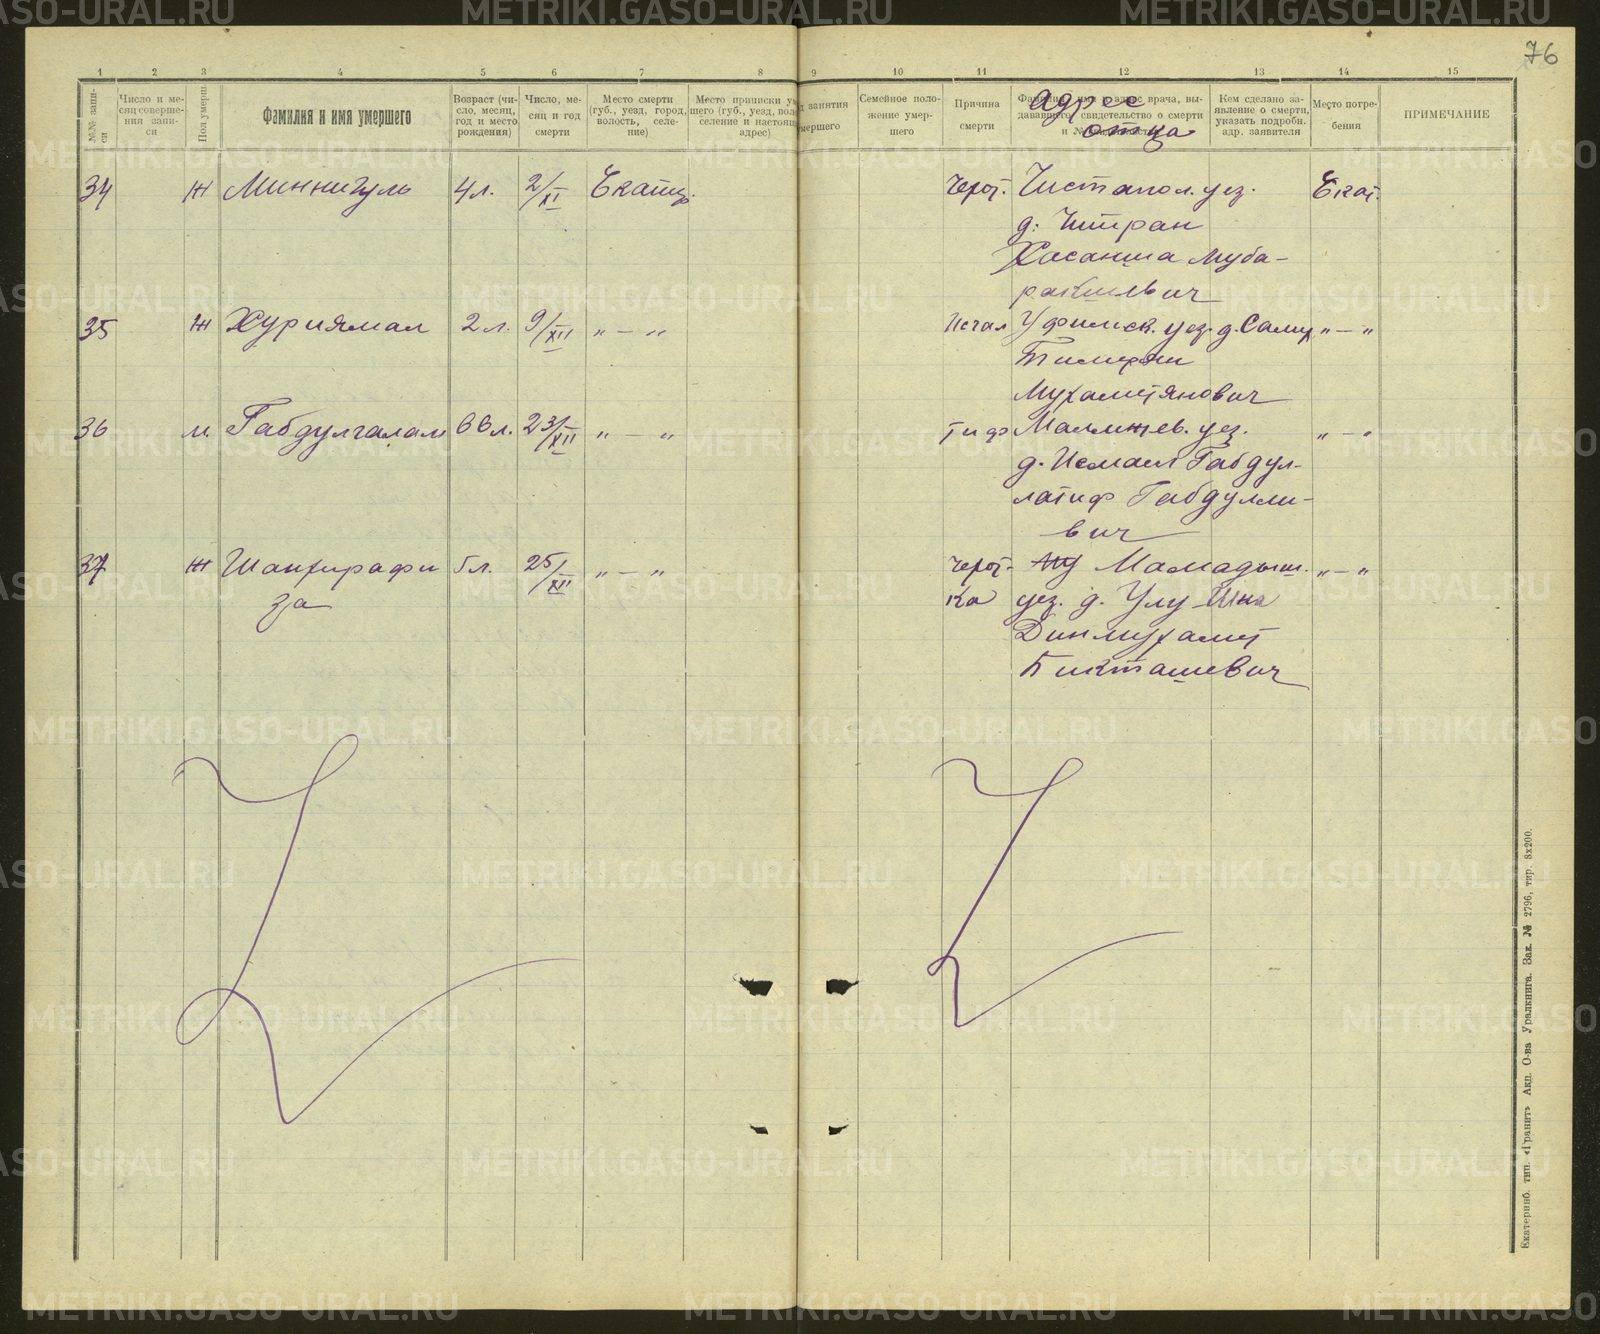 76
1 2 3 4 5 6 7 8 9 10 11 12 13 14 15
№№ запи-
си
Число и ме-
сяц соверше-
ния запи-
си
Пол умерш.
Фамилия и имя умершего
Возраст (чи-
сло, месяц,
год и место
рождения)
Число, ме-
сяц и год
смерти
Место смерти
(губ., уезд, город,
волость, селе-
ние)
Место приписки
шего (губ., уезд,
селение и
адрес)
занятия
умершего
Семейное поло-
жение умер-
шего
Причина
смерти
Адрес
отца
Кем сделано за-
явление о смерти,
указать подробн.
адр. заявителя
Место погре-
бения
ПРИМЕЧАНИЕ
34 Ж Миннигуль 4 л. 2/XI Екатер. Черот. Чистапол. уез. Екат.
д.
Хасанша Муба-
ракшевич
35 Ж Хуриямал 2 л. 9/XII „ — „ Уфимск. уез. д. „ — „
Мухаметянович
36 м. Габдулгалам 66 л. 23/XII „ — „ Тиф Малмыжев. уез. „ — „
д. Исмаил Габдул-
латиф Габдулли-
вич
37 Ж Шангирафи 5 л. 25/XII „ — „ Черот- Мамадыш. „ — „
за ка уез. д. Улу
Динмухамет
Бикташевич
Екатеринб. тип. «Гранит» Акц. О-ва Уралкнига. Зак. № 2796, тир. 8х200.
METRIKI.GASO-URAL.RU